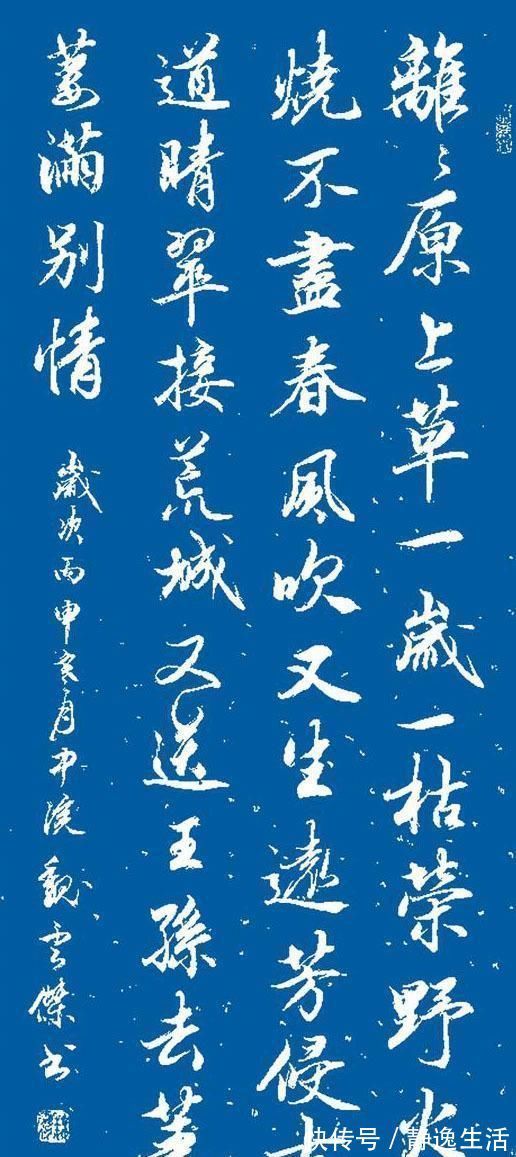 離〻原上草一歲一枯榮野火
燒不盡春風吹又生遠芳侵古
道晴翠接荒城又送王孫去萋
萋滿別情
歲次丙申亥月中浣魏雲傑书
快传号 / 静逸生活